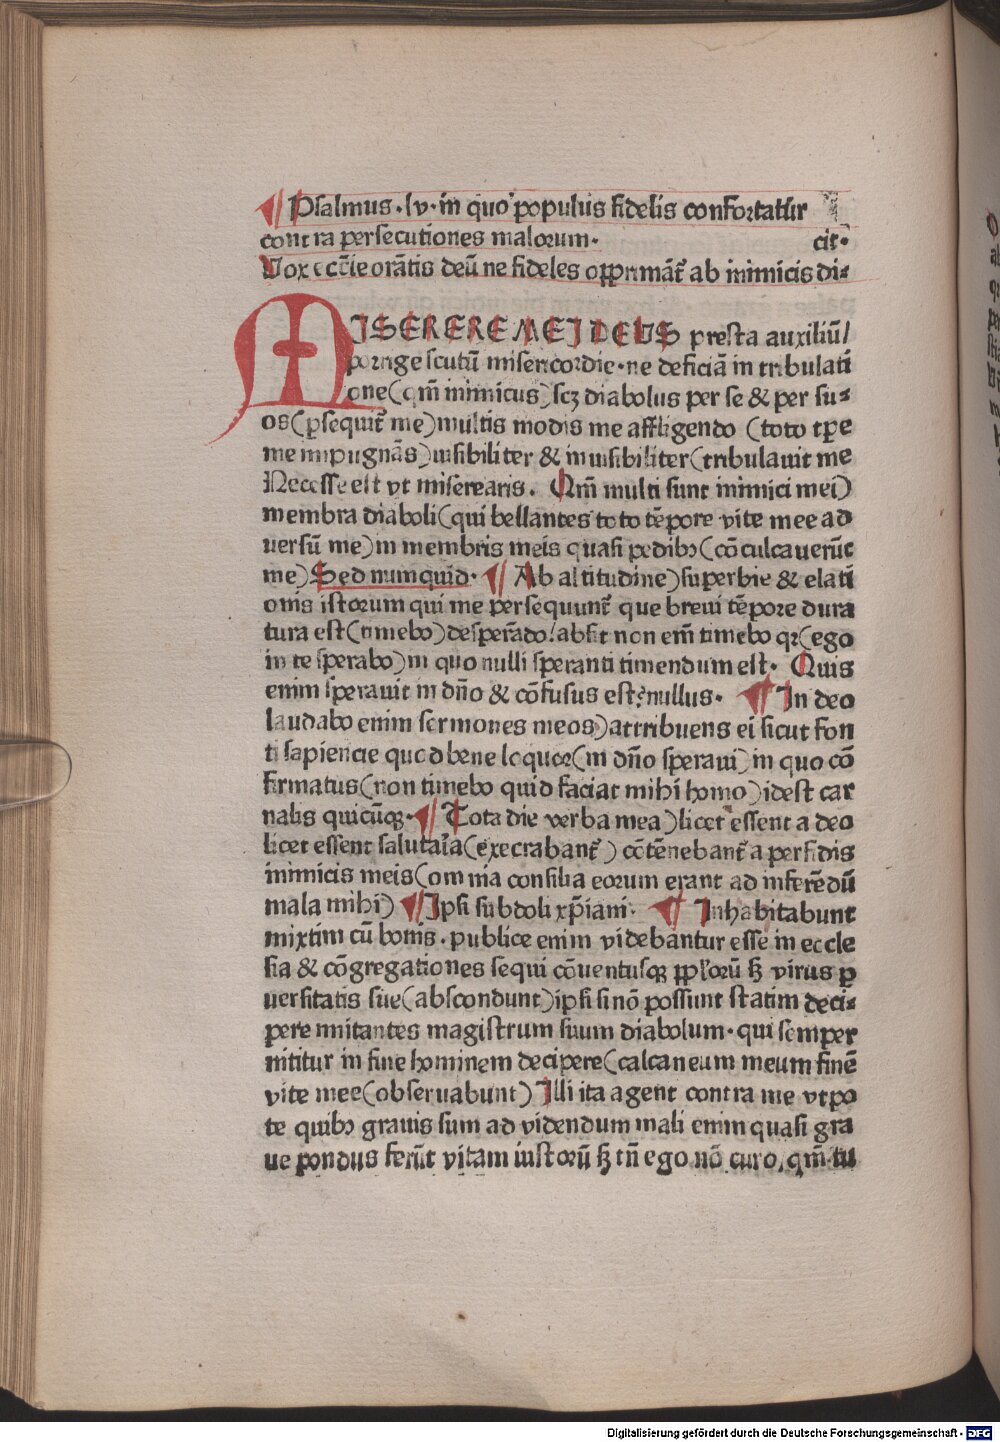 ¶ Psalmus · lv · in quo populus fidelis confortatur
contra persecutiones malorum·
cit·
Vox eccīie orātis deū ne fideles opprimāt᷑ ab inimicis di⸗
MISERERE MEI DEUS presta auxiliū/
porrige scutū misericordie· ne deficiā in tribulati
one(qm̄ inimicus) scꝫ diabolus per se & per su⸗
os(ꝑsequit᷑ me)multis modis me affligendo (toto tꝑe
me inpugnās)uisibiliter & inuisibiliter(tribulauit me
Necesse est vt miserearis. Qm̄ multi sunt inimici mei)
membra diaboli(qui bellantes toto tēpore vite mee ad
uersū me)in membris meis quasi pedibꝰ(cōculcauerūt
me)Sed numquid· ¶ Ab altitudine)superbie & elati
onis istorum qui me persequunt᷑ que breui tēpore dura
tura est(timebo)desperādo/absit non em̄ timebo qꝛ(ego
in te sperabo)in quo nulli speranti timendum est· Quis
enim sperauit in dn̄o & cōfusus est?nullus· ¶ In deo
laudabo enim sermones meos)attribuens ei sicut fon
ti sapiencie quod bene loquor(in dn̄o speraui)in quo cō
firmatus(non timebo quid faciat mihi homo)idest car
nalis quicūqꝫ·¶ Tota die verba mea)licet essent a deo
licet essent salutaria(execrabant᷑) cōtēnebant᷑ a perfidis
inimicis meis(omnia consilia eorum erant ad inferēdū
mala mihi)¶Ipsi subdoli xp̄iani· ¶ Inhabitabunt
mixtim cū bonis· publice enim videbantur esse in eccle
sia & cōgregationes sequi cōuentusqꝫ pploꝝū sꝫ virus ꝑ
uersitatis sue(abscondunt)ipsi si nō possunt statim deci⸗
pere imitantes magistrum suum diabolum· qui semper
nititur in fine hominem decipere(calcaneum meum finē
vite mee(obseruabunt)Illi ita agent contra me vtpo
te quibꝰ grauis sum ad videndum mali enim quasi gra
ue pondus ferūt vitam iustorū sꝫ tn̄ ego nō curo, qm̄ tu
Digitalisierung gefördert durch die Deutsche Forschungsgemeinschaft - DFG